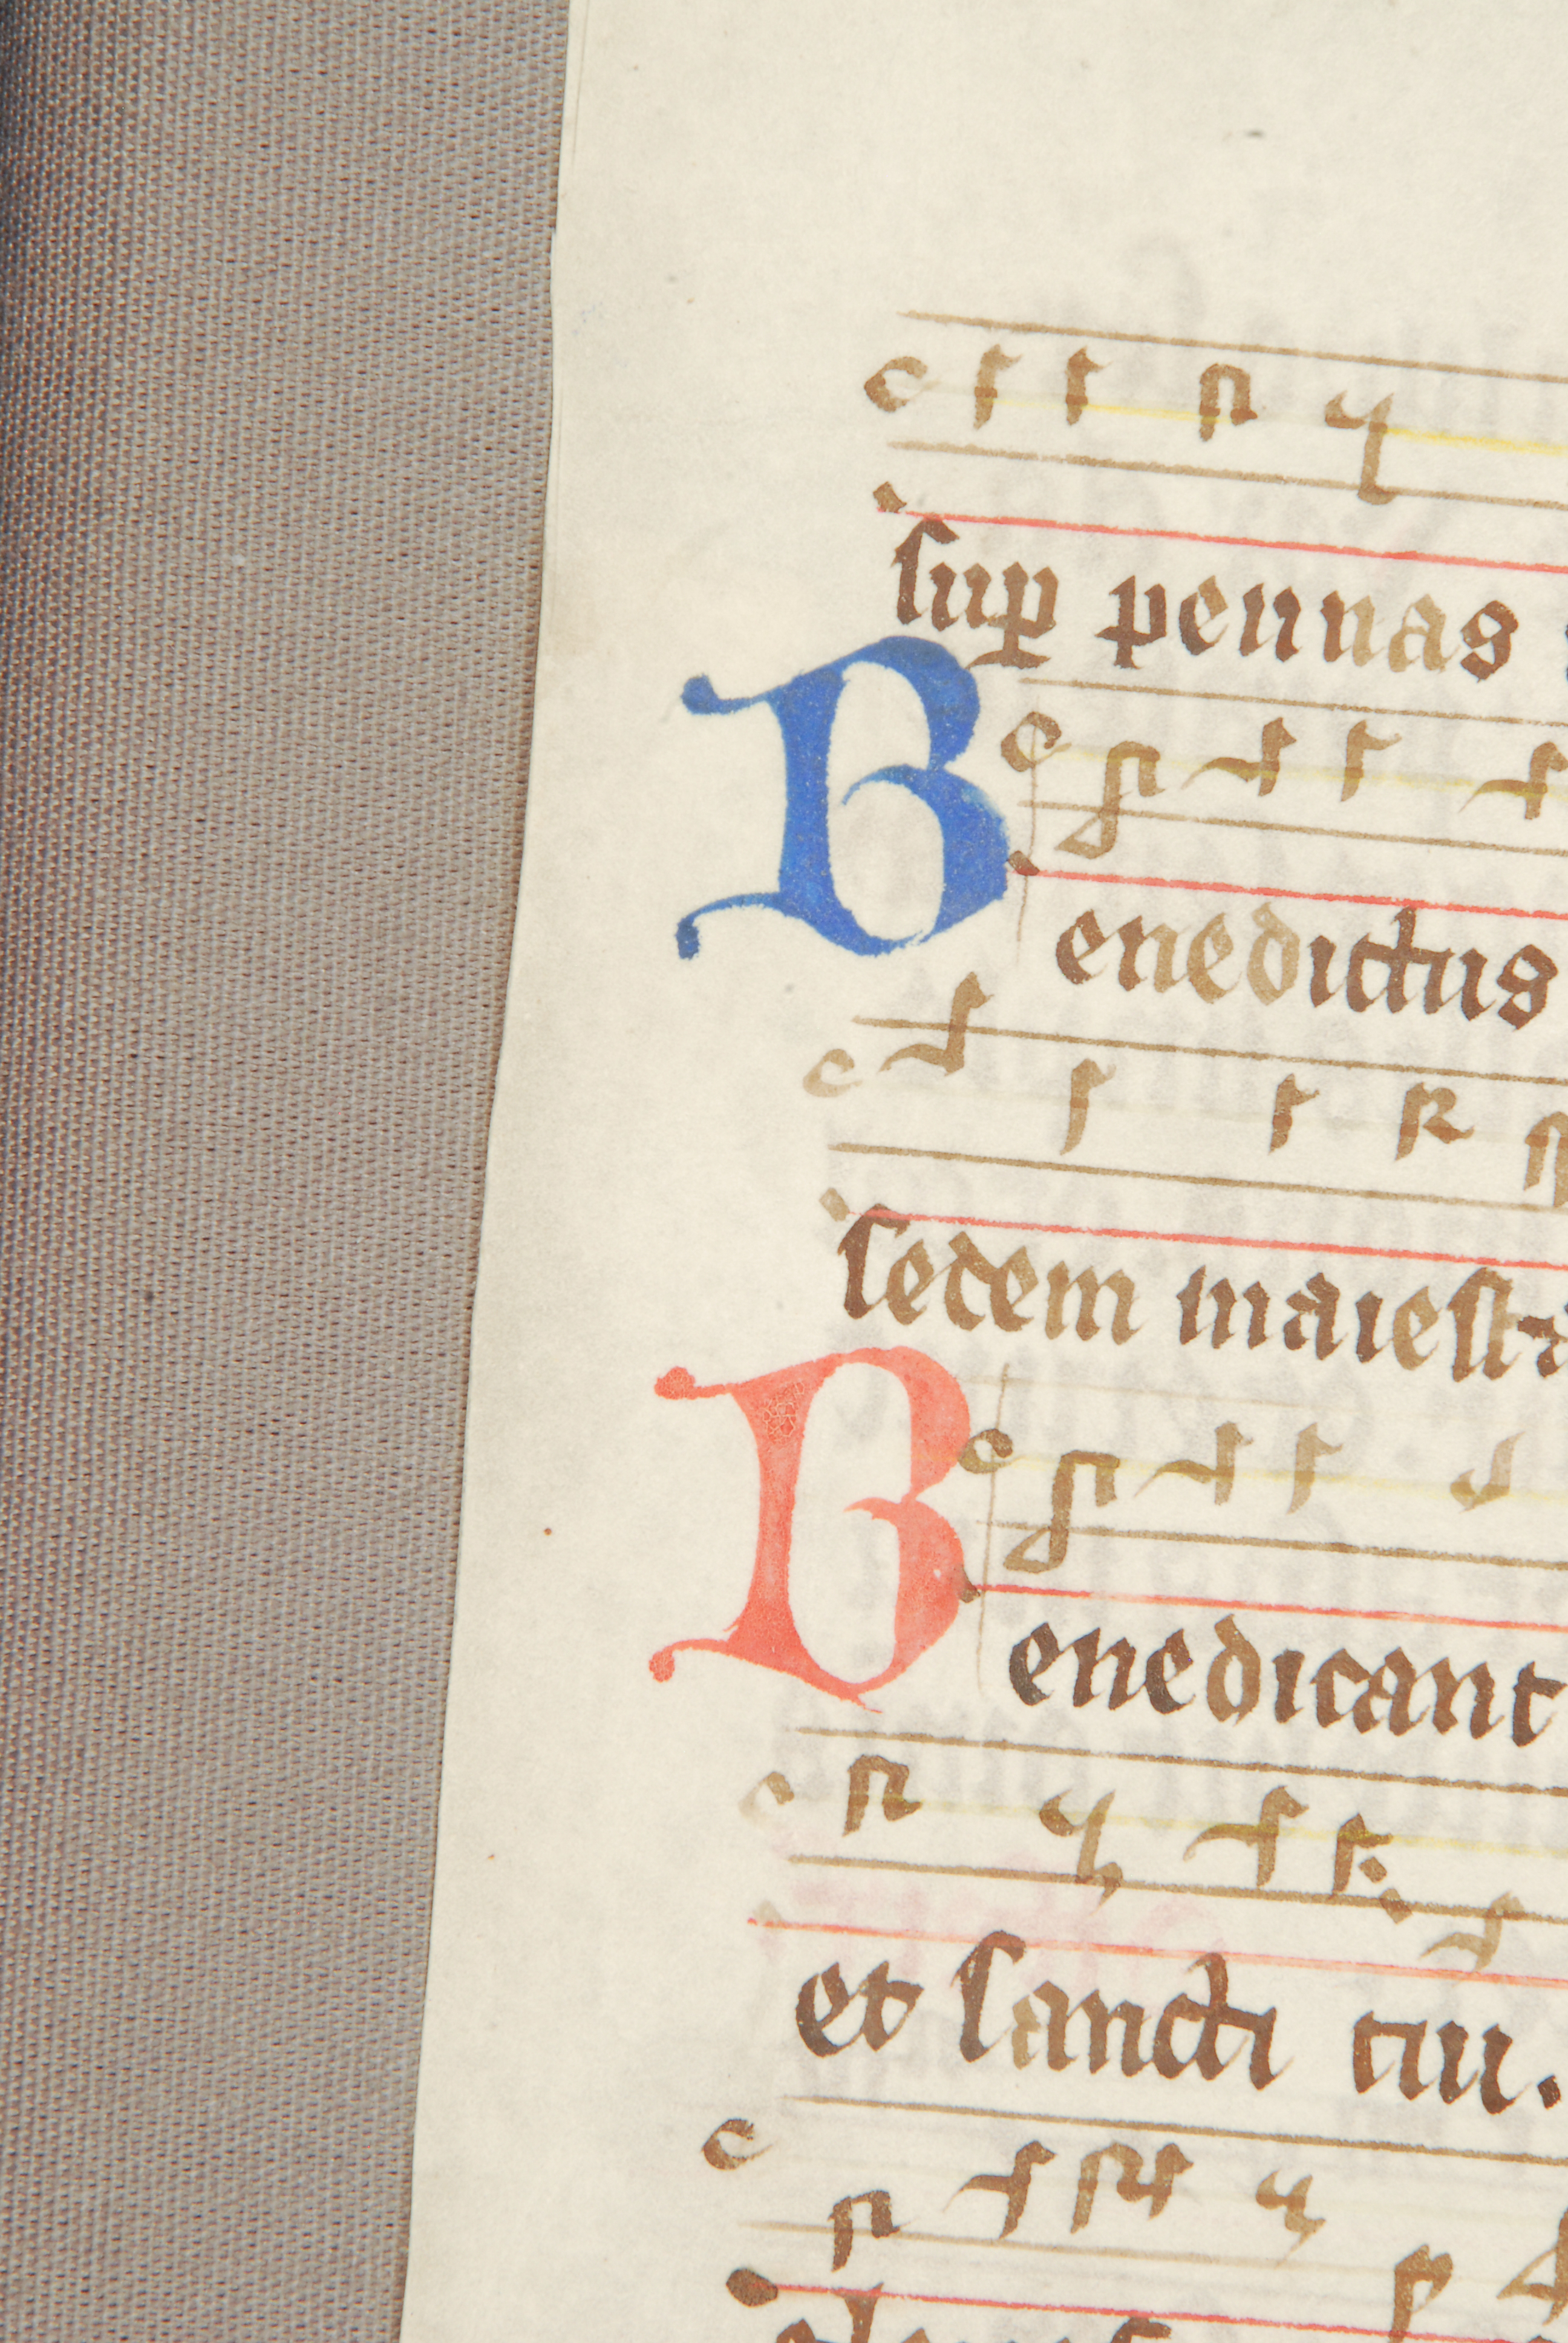 sup̱ pennas
Benedictus
sedem maiesta
Benedicant
et sancti tui.